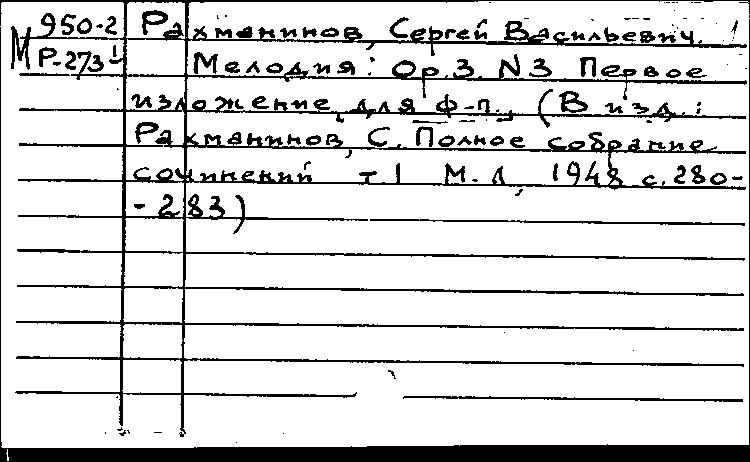 М 950-2 Рахманинов, Сергей Васильевич.
Р-273¹ Мелодия: Ор.3. N3 Первое
изложение для ф-п., (В изд.:
Рахманинов, С. Полное собрание
сочинений т.1 М.-Л, 1948 с.280-
-283)